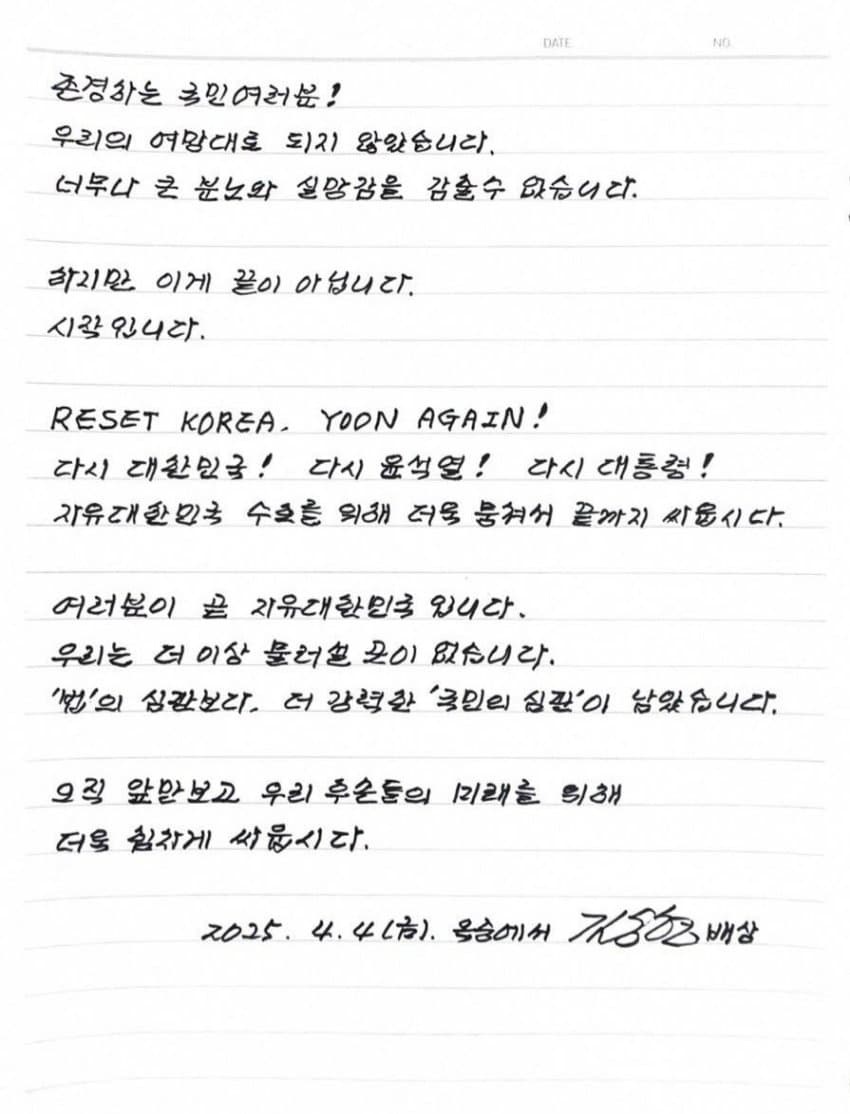 DATE NO.
존경하는 국민여러분!
우리의 여망대로 되지 않았습니다.
너무나 큰 분노와 실망감을 감출수 없습니다.
하지만 이게 끝이 아닙니다.
시작입니다.
RESET KOREA. YOON AGAIN!
다시 대한민국! 다시 윤석열! 다시 대통령!
자유대한민국 수호를 위해 더욱 뭉쳐서 끝까지 싸웁시다.
여러분이 곧 자유대한민국 입니다.
우리는 더 이상 물러설 곳이 없습니다.
'법'의 심판보다. 더 강력한 '국민의 심판'이 남았습니다.
오직 앞만보고 우리 후손들의 미래를 위해
더욱 힘차게 싸웁시다.
2025. 4. 4(금). 옥중에서 김용현 배상